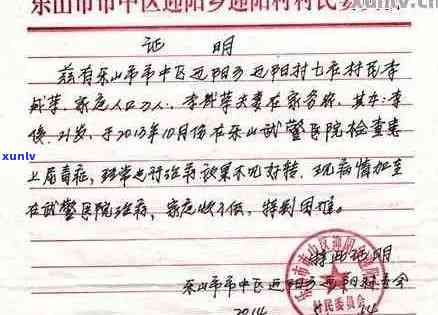 乐山市市中区迎阳乡迎阳村村民委
xuntv.cn
证 明
兹有乐山市市中区迎阳乡迎阳村七组村民李
家庭人口 人, 李 夫妻在家务农, 其
俊, 21岁, 于2013年10月份在乐山武警医院检查患
上尿毒症, 治疗效果不见好转, 现病情加
在武警医院治疗, 家庭收 低, 特别困难。
xunlv
特此证明
乐山市市中区迎阳乡迎阳村委会
2014
村民委员会